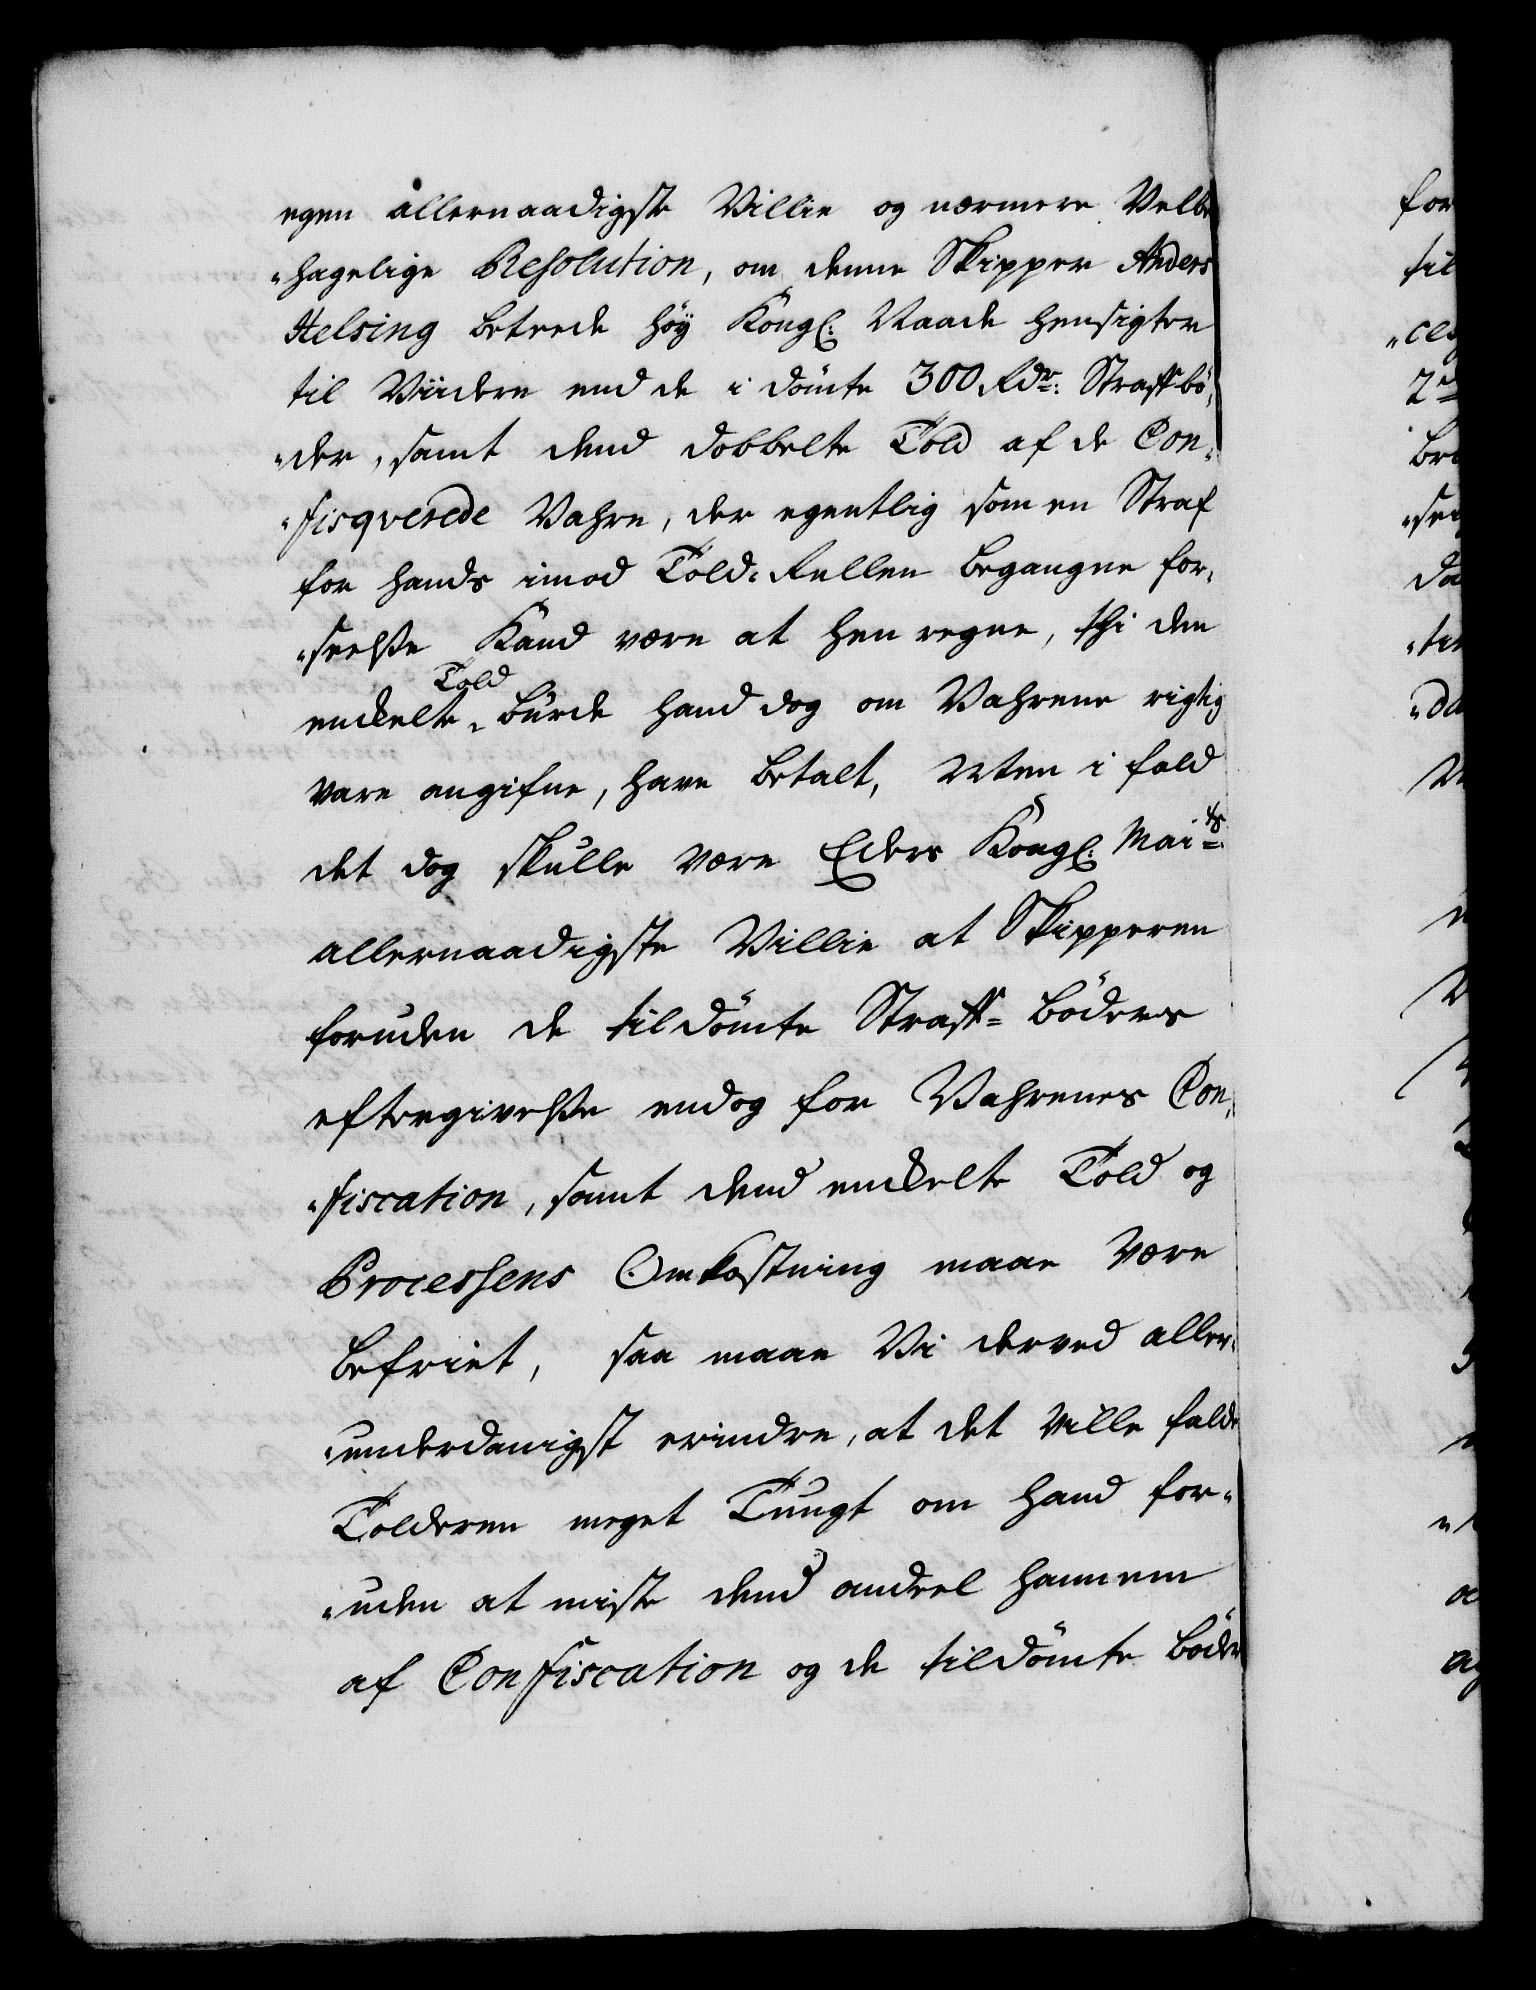 egen allernaadigste Villie og nærmere Velbe
"hagelige Resolution, om denne Skipper Anders
Helsing beteede höy Kongl: Naade hensigter
til Viidere end de i dömte 300 Rdr: Straffbö,
"der, samt dend dobbelte Told af de Con,
"fisqverede Vahre, der egentlig som en Straf
for hands imod Told-Rullen begangne for,
"seelße Kand være at hen regne, thi den
Told
enckelte burde hand dog om Vahrene rigtig
vare angifne, have betalt, Uten i fald
det dog skulle være Eders Kongl: Maits:
allernaadigste Villie at Skipperen
foruden de tildömte Straff= böders
eftergivelße endog for Vahrenes Con,
"fiscation, samt dend enckelte Told og
Processens Omkostning maae være
befriet, saa maae Vi derved aller,
"underdanigst erindre, at det ville falde
Tolderen meget Tungt om hand for"
"uden at miste dend andeel hannem
af Confiscation og de tildömte böder
for
til